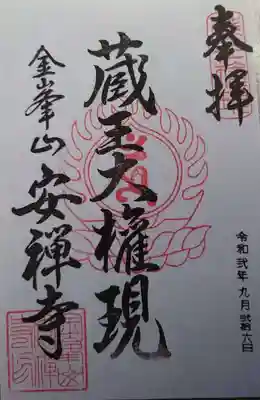 奉拝
令和弐年 九月 弐拾六日
蔵王大権現
金峯山 安禅寺